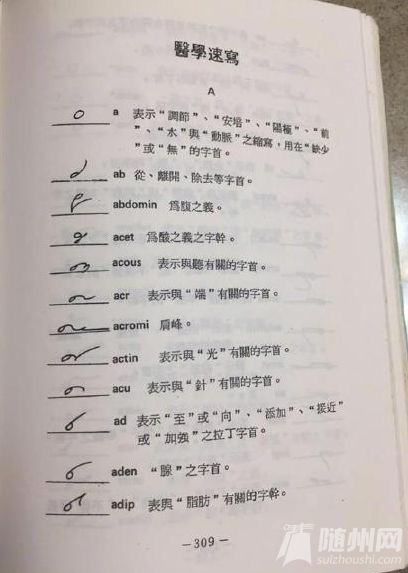 醫學速寫
A
a 表示“調節”、“安培”、“陽極”、“前
”、“水”與“動脈”之縮寫，用在“缺少
”或“無”的字首。
ab 從、離開、除去等字首。
abdomin 爲腹之義。
acet 爲酸之義之字幹。
acous 表示與聽有關的字首。
acr 表示與“端”有關的字首。
acromi 肩峰。
actin 表示與“光”有關的字首。
acu 表示與“針”有關的字首。
ad 表示“至”或“向”、“添加”、“接近”
或“加強”之拉丁字首。
aden “腺”之字首。
adip 表與“脂肪”有關的字幹。
—309—
随州网
suizhoushi.com